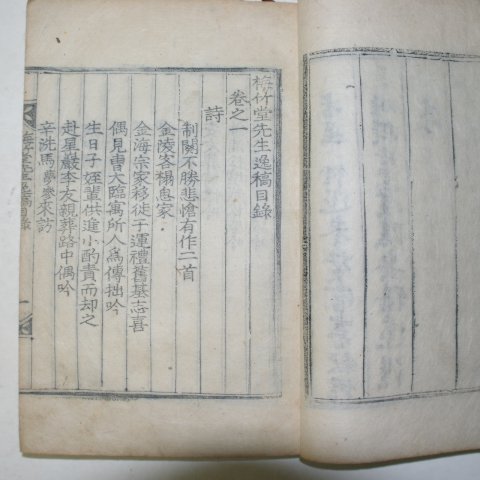 梅竹堂先生逸稿目錄
卷之一
詩
制闋不勝悲愴有作二首
金陵客榻思家
金海宗家移徙于運禮舊基志喜
偶見曺大臨寓所人爲傳拙吟
生日子姪輩供進小酌責而却之
赴星巖李友親葬路中偶吟
辛洗馬夢參來訪